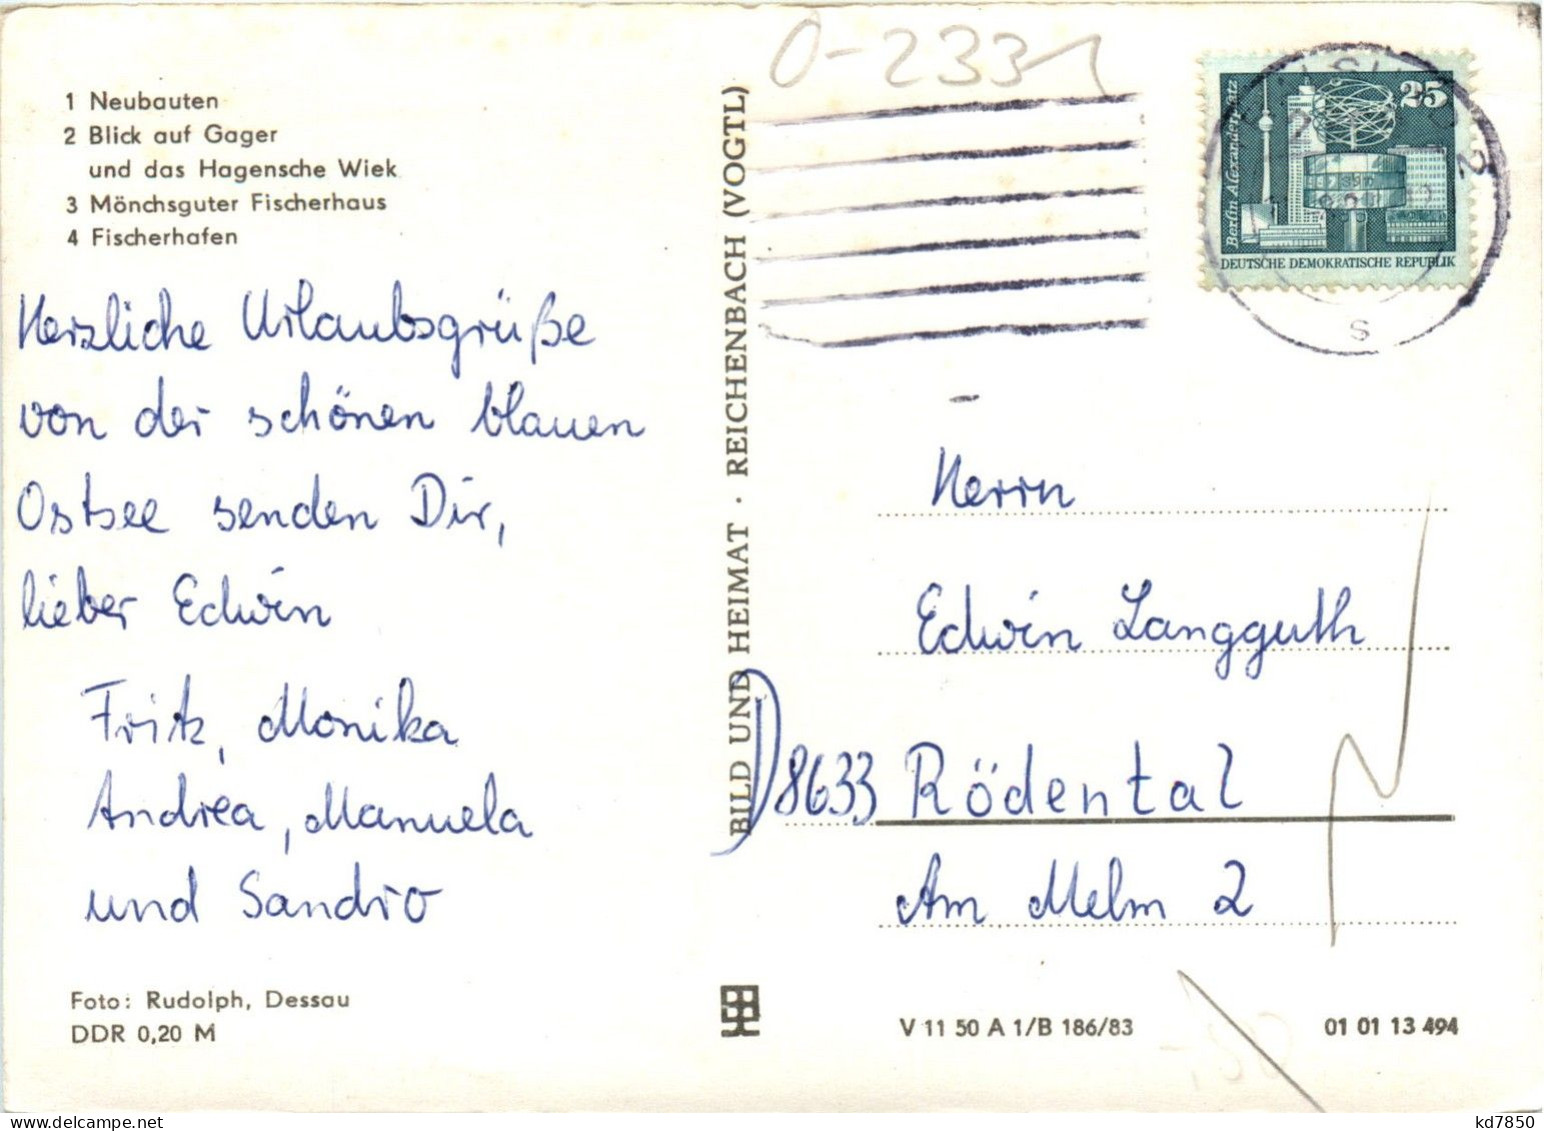 O-2331
1 Neubauten
2 Blick auf Gager
und das Hagensche Wiek
3 Mönchsguter Fischerhaus
4 Fischerhafen
Herzliche Urlaubsgrüße
von der schönen blauen
Ostsee senden Dir,
lieber Edwin
Fritz, Monika
Andrea, Manuela
und Sandro
Foto: Rudolph, Dessau
DDR 0,20 M
BILD UND HEIMAT · REICHENBACH (VOGTL)
25
Berlin-Alexanderplatz
DEUTSCHE DEMOKRATISCHE REPUBLIK
s
Herrn
Edwin Langguth
D 8633 Rödental
Am Melm 2
V 11 50 A 1/B 186/83
01 01 13 494
kd7850